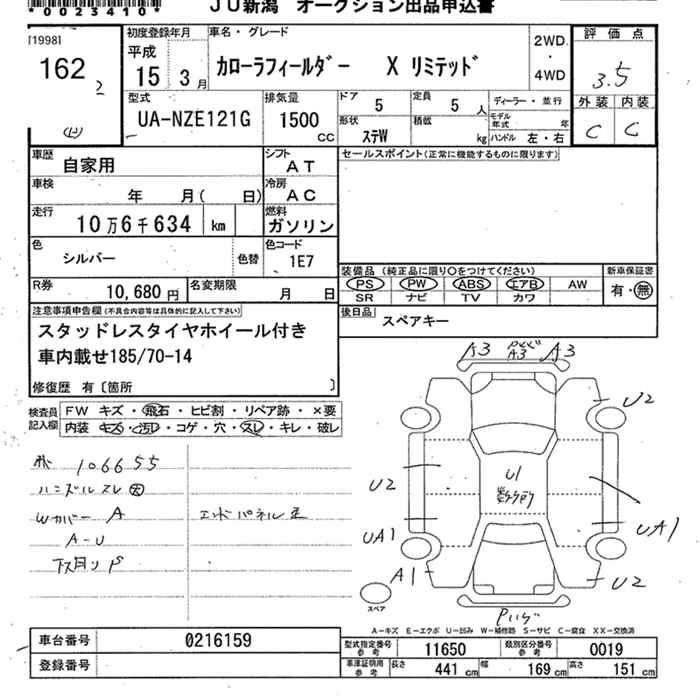 *0023410*
JU新潟 オークション出品申込書
[1998]
162
2
初度登録年月
平成
15年3月
車名・グレード
カローラフィールダー X リミテッド
2WD
・
4WD
評価点
3.5
外装 内装
C C
型式
UA-NZE121G
排気量
1500
CC
ドア
5
定員
5人
形状
ステW
積載
kg
ディーラー・並行
モデル年式 年
ハンドル 左・右
車歴
自家用
シフト
AT
車検
年 月( 日)
冷房
AC
走行
10万6千634 km
燃料
ガソリン
色
シルバー
色替
色コード
1E7
R券
10,680円
名変期限
月 日
セールスポイント(正常に機能するものに限ります)
装備品(純正品に限り○をつけてください)
PS PW ABS エアB AW
SR ナビ TV カワ
新車保証書
有・無
後日品
スペアキー
注意事項申告欄(不具合内容等は具体的に記入して下さい)
スタッドレスタイヤホイール付き
車内載せ185/70-14
修復歴 有〔箇所 〕
検査員記入欄
FW キズ・飛石・ヒビ割・リペア跡・×要
内装 キズ・汚レ・コゲ・穴・スレ・キレ・破レ
106655
ハンドルスレ 大
Wカバー A
A-U
下廻りP
エンドパネル歪
A3 A3 A3
U2
U1
数ヶ所
U2
UA1
UA1
A1
U2
スペア
A-キズ E-エクボ U-凹み W-補修跡 S-サビ C-腐食 XX-交換済
車台番号
0216159
登録番号
型式指定番号
参考
11650
類別区分番号
参考
0019
車庫証明用
参考
長さ 441 cm 幅 169 cm 高さ 151 cm